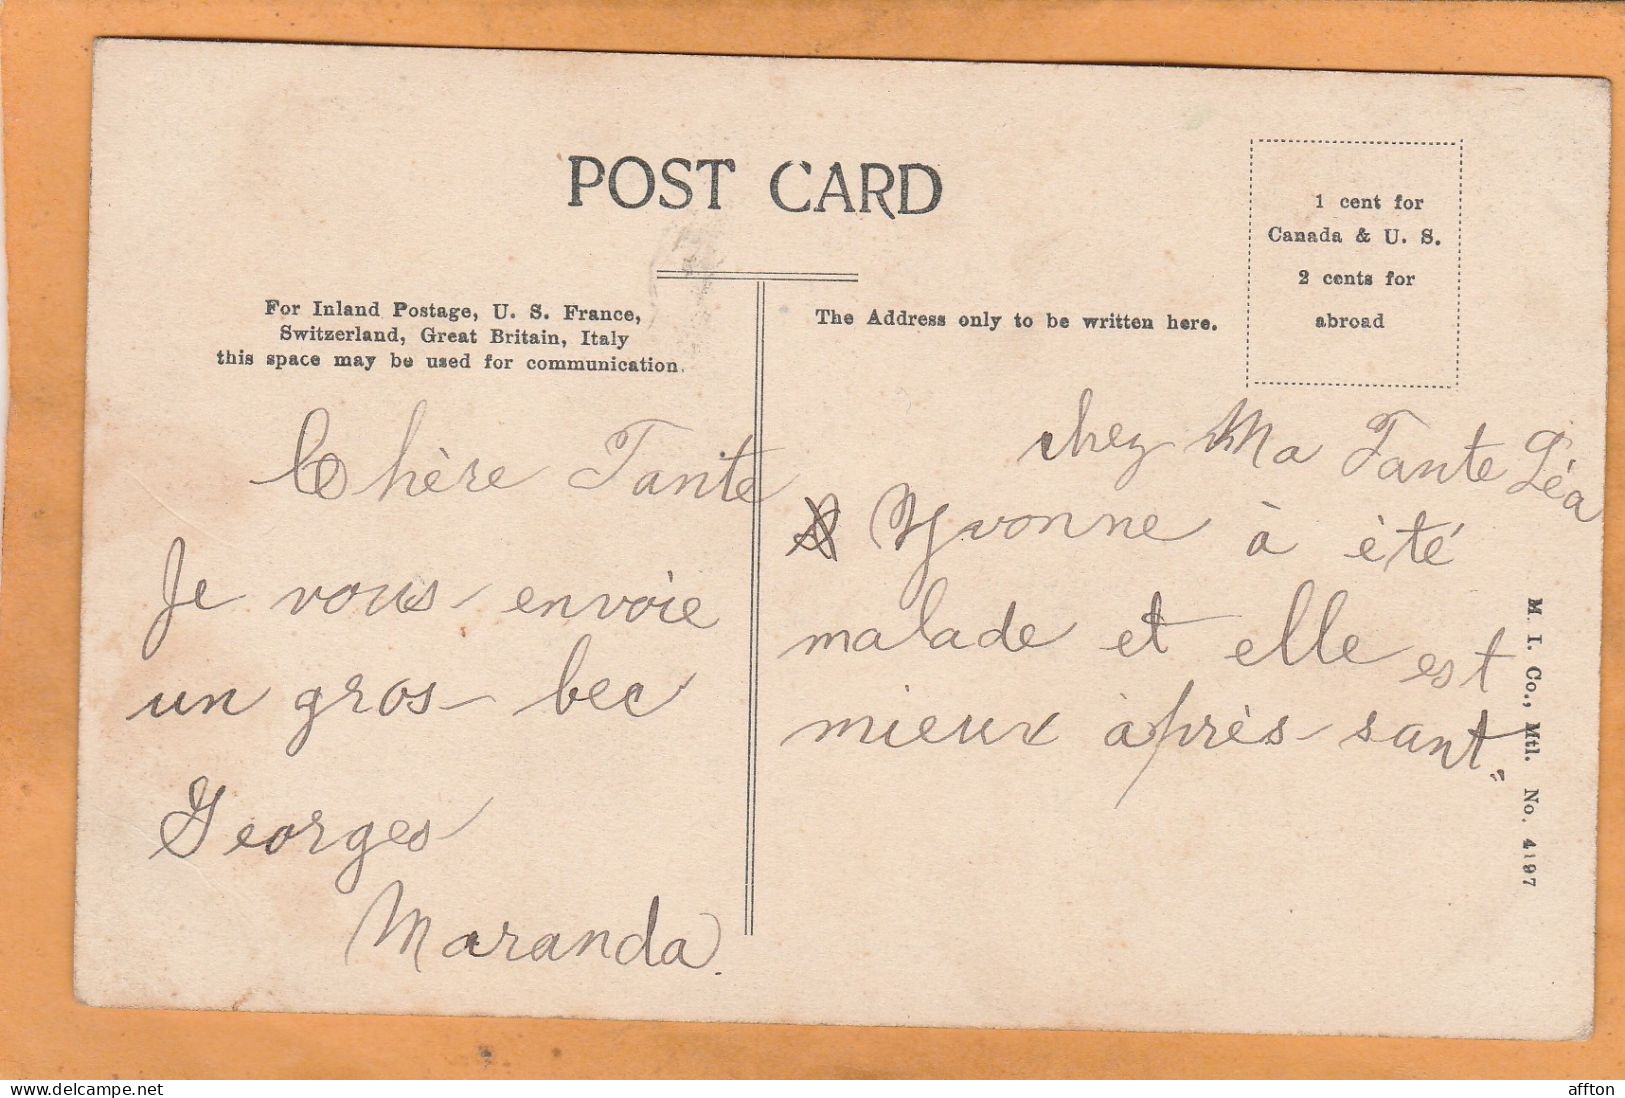 POST CARD
1 cent for
Canada & U. S.
2 cents for
abroad
For Inland Postage, U. S. France,
Switzerland, Great Britain, Italy
this space may be used for communication.
The Address only to be written here.
Chère Tante
Je vous envoie
un gros bec
Georges
Maranda.
chez Ma Tante Léa
Yvonne à èté
malade et elle est
mieux àprès sant
M. I. Co., Mtl. No. 4197
www.delcampe.net
affton